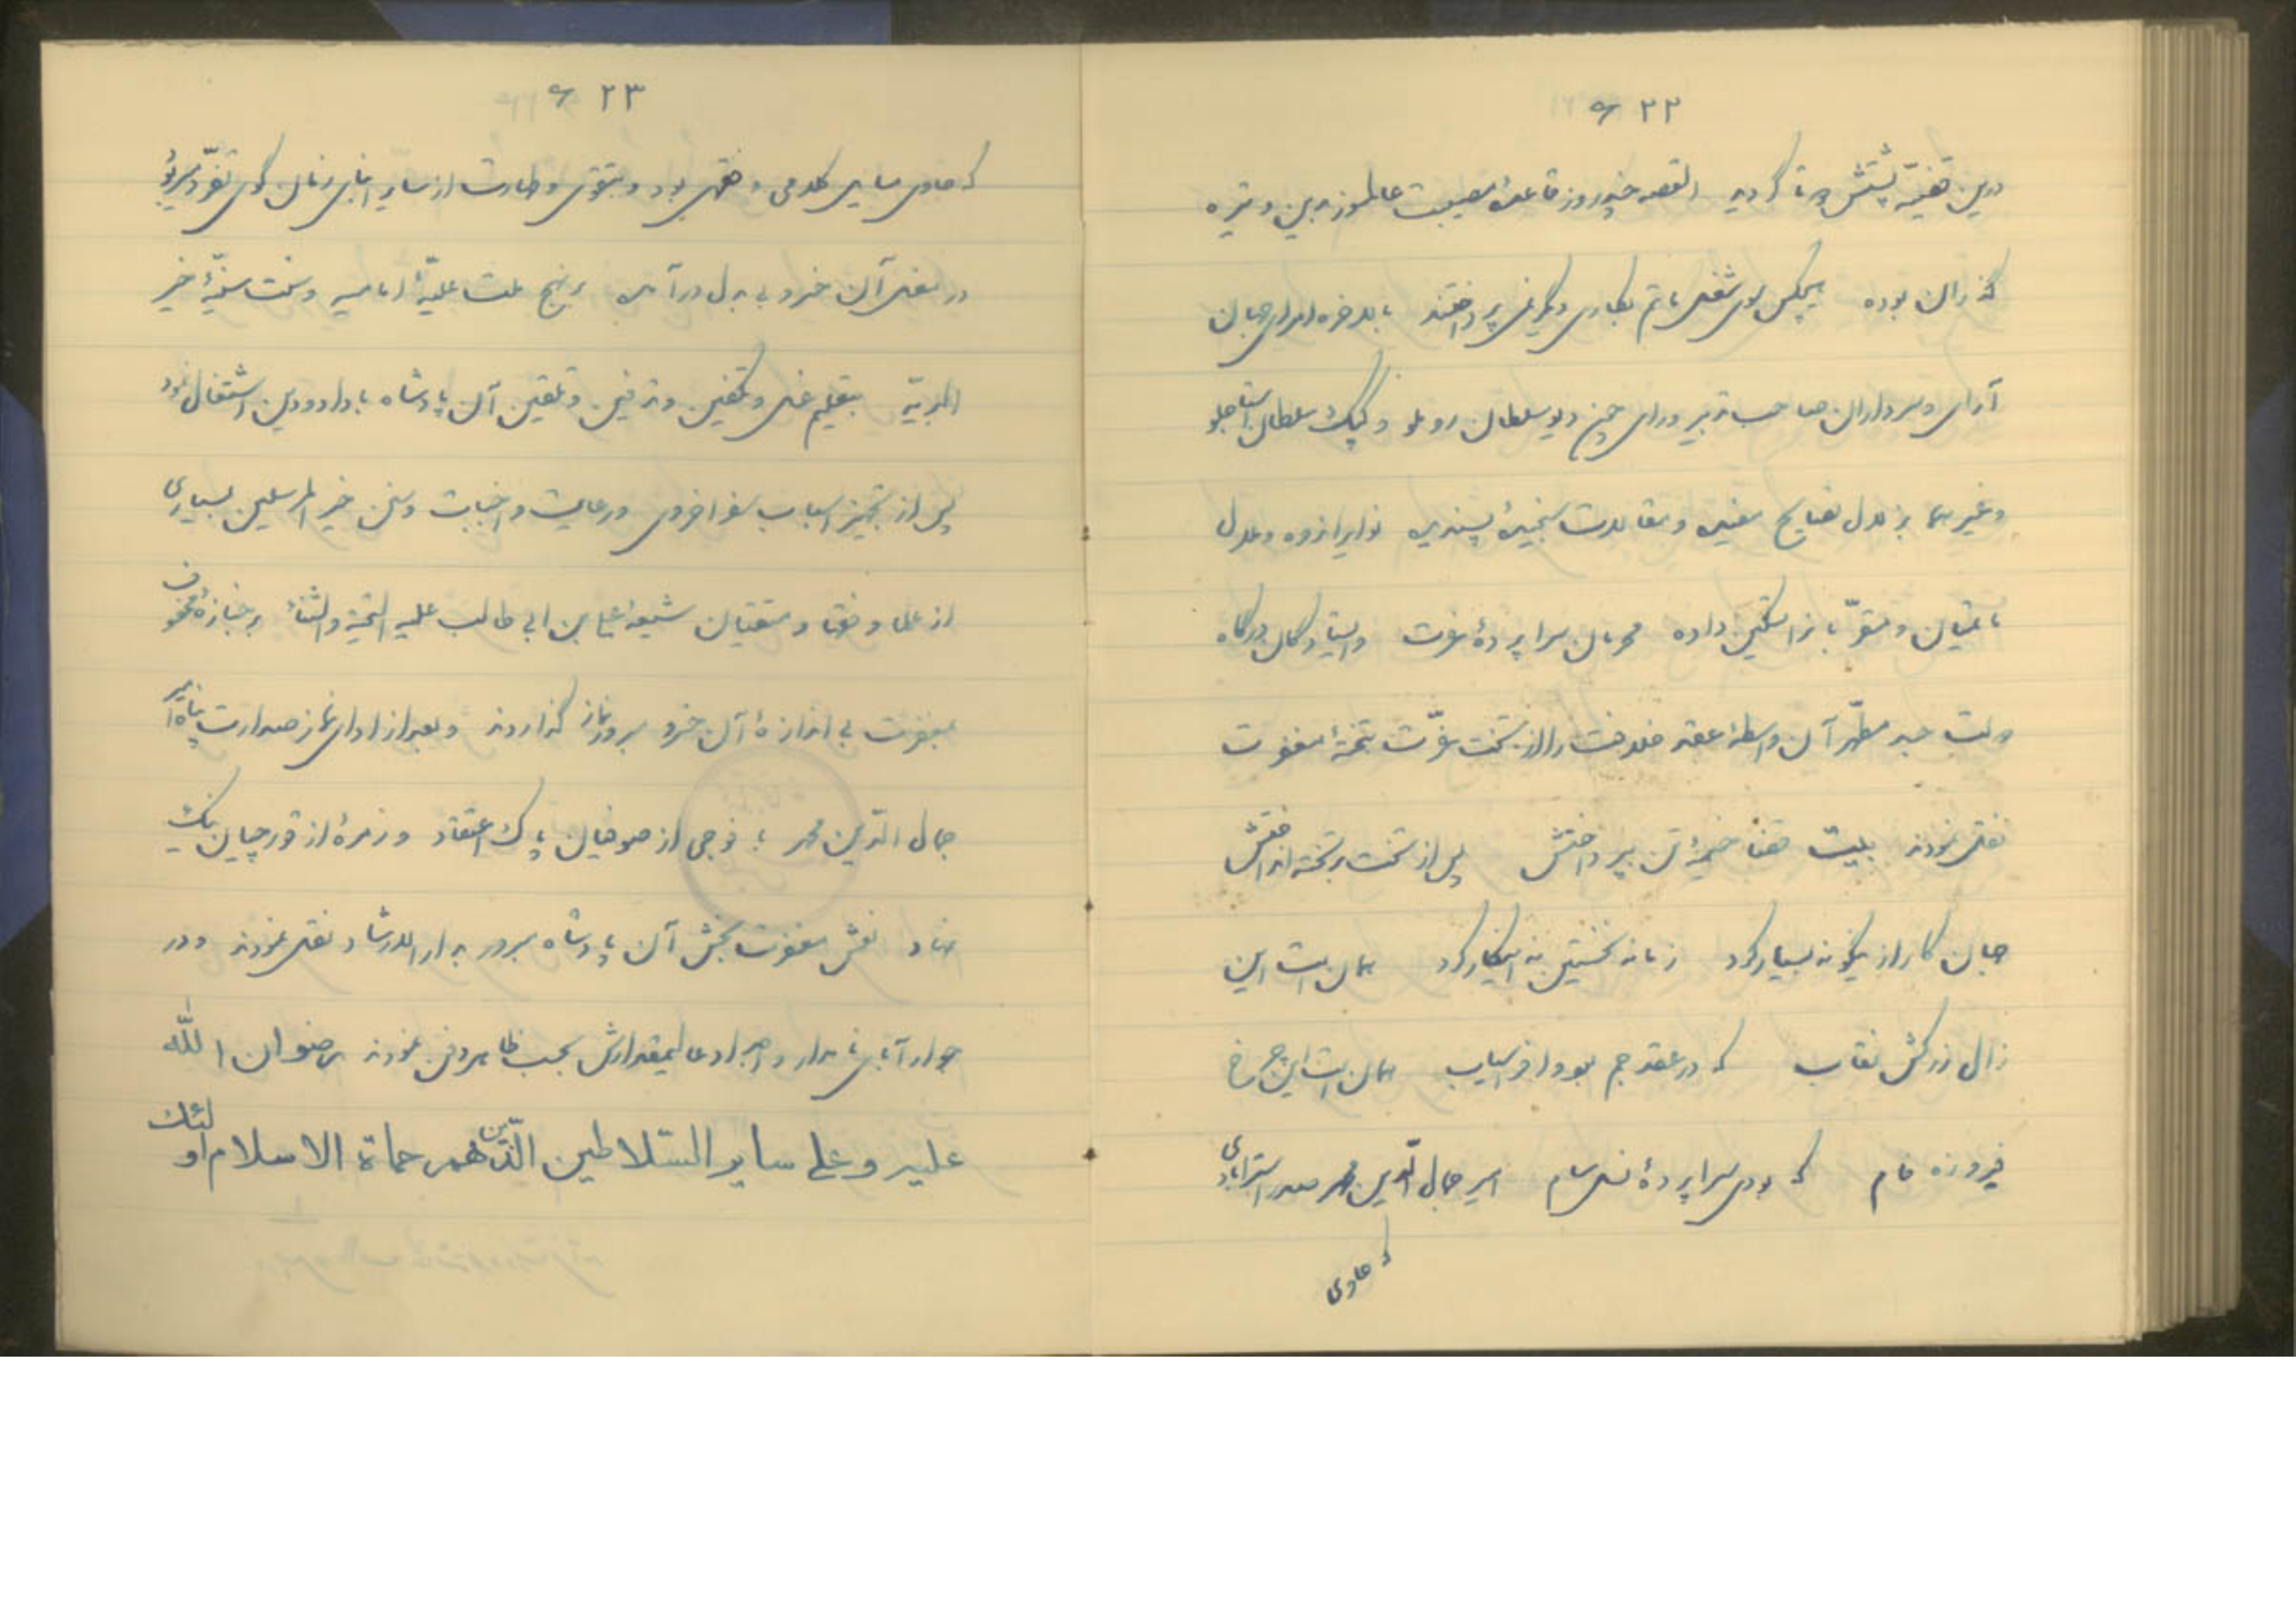 ۶۲۲
درین قضیّه پشتش دوتا گردید القصه چند روز قاعدهٔ مصیبت عالمسوز بدین وتیره
گذران بوده هیچکس سوای شغل ماتم بکاری دیگر نمی پرداختند بالاخره امرای جهان
آرای و سرداران صاحب تدبیر و رای چون دیو سلطان روملو و کپک سلطان استاجلو
و غیرهما بزلال نصایح مفیده و مقالات سنجیدهٔ پسندیده نوایر اندوه و ملال
باقیان و متقرّبانرا تسکین داده محرمان سراپردهٔ عزت و ایستادگان درگاه
دولت جسد مطهّر آن واسطهٔ عقد خلافت را از تخت عزّت بتختهٔ مغفرت
نقل نمودند بیت قضا خیمهٔ تن بپرداختش پس از تخت بر تخته انداختش
جهان کار ازینگونه بسیار کرد زمانه نخستین نه اینکار کرد همان است این
زال زرکش نقاب که در عقد جم بود و افراسیاب همان است این چرخ
فیروزه فام که بودی سراپردهٔ نسل سام امیر جمال الدّین محمد صدر استرابادی
که حاوی
۶۲۳
که حاوی مسایل کلامی و فقهی بود و بتقوی و طهارت از سایر اهالی زمان گوی تفوّق میربود
در نعش آن خسرو بیبدل درآمده بنهج ملت علیّهٔ امامیه و سنت سنیّهٔ خیر
البریّه بتعلیم غسل و تکفین و تدفین و تلقین آن پادشاه باداد و دین اشتغال نمود
پس از تجهیز اسباب سفر اخروی و رعایت واجبات و سنن خیر المرسلین بسیاری
از علما و فقها و متقیان شیعهٔ علی بن ابی طالب علیه التحیة و الثنا بر جنازهٔ محفوف
بمغفرت بی اندازهٔ آن خسرو سرور نماز گذاردند و بعد از ادای نماز صدارت پناه امیر
جمال الدّین محمد با فوجی از صوفیان پاک اعتقاد و زمرهٔ از قورچیان نیک
نهاد نعش مغفرت بخش آن پادشاه سرور بدار الارشاد نقل نمودند و در
جوار آبای نامدار و اجداد عالیمقدارش بحسب ظاهر دفن نمودند رضوان الله
علیه و علی سایر السّلاطین الّذین هم حماة الاسلام اولئک